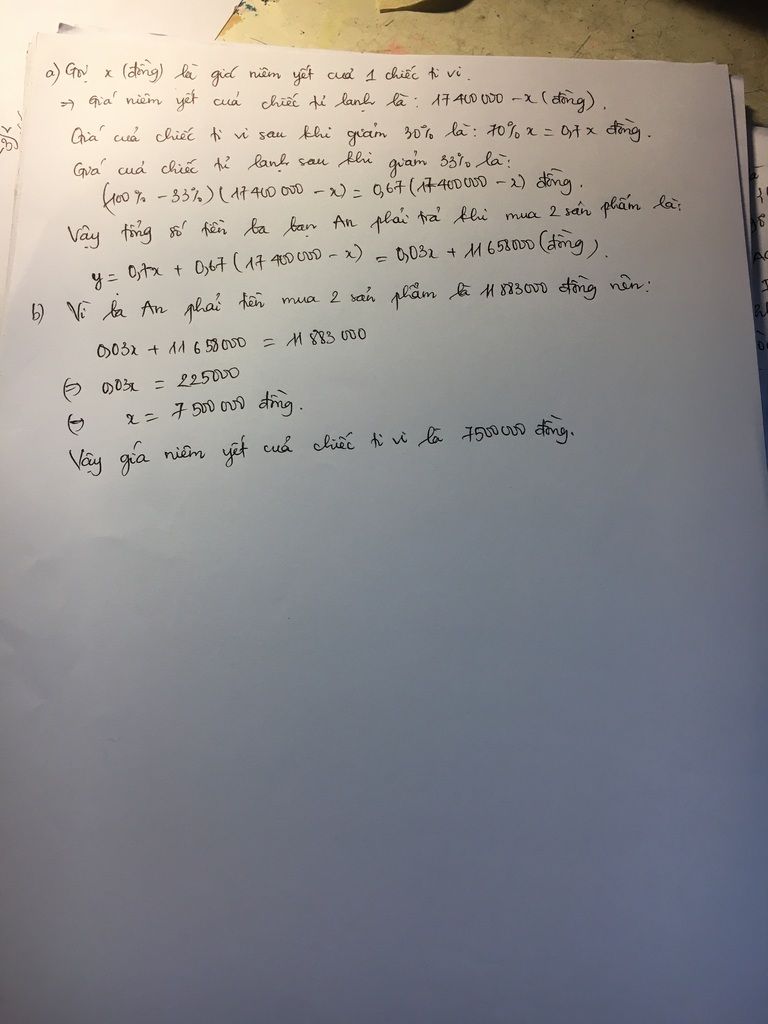 a) Gọi x (đồng) là giá niêm yết của 1 chiếc ti vi.
=> Giá niêm yết của chiếc tủ lạnh là: 17 400 000 - x (đồng).
Giá của chiếc ti vi sau khi giảm 30% là: 70% x = 0,7 x đồng.
Giá của chiếc tủ lạnh sau khi giảm 33% là:
(100% - 33%) (17 400 000 - x) = 0,67 (17 400 000 - x) đồng.
Vậy tổng số tiền ba bạn An phải trả khi mua 2 sản phẩm là:
y = 0,7x + 0,67 (17 400 000 - x) = 0,03x + 11 658 000 (đồng).
b) Vì ba An phải tiền mua 2 sản phẩm là 11 883 000 đồng nên:
0,03x + 11 658 000 = 11 883 000
(=) 0,03x = 225000
(=) x = 7 500 000 đồng.
Vậy giá niêm yết của chiếc ti vi là 7500 000 đồng.